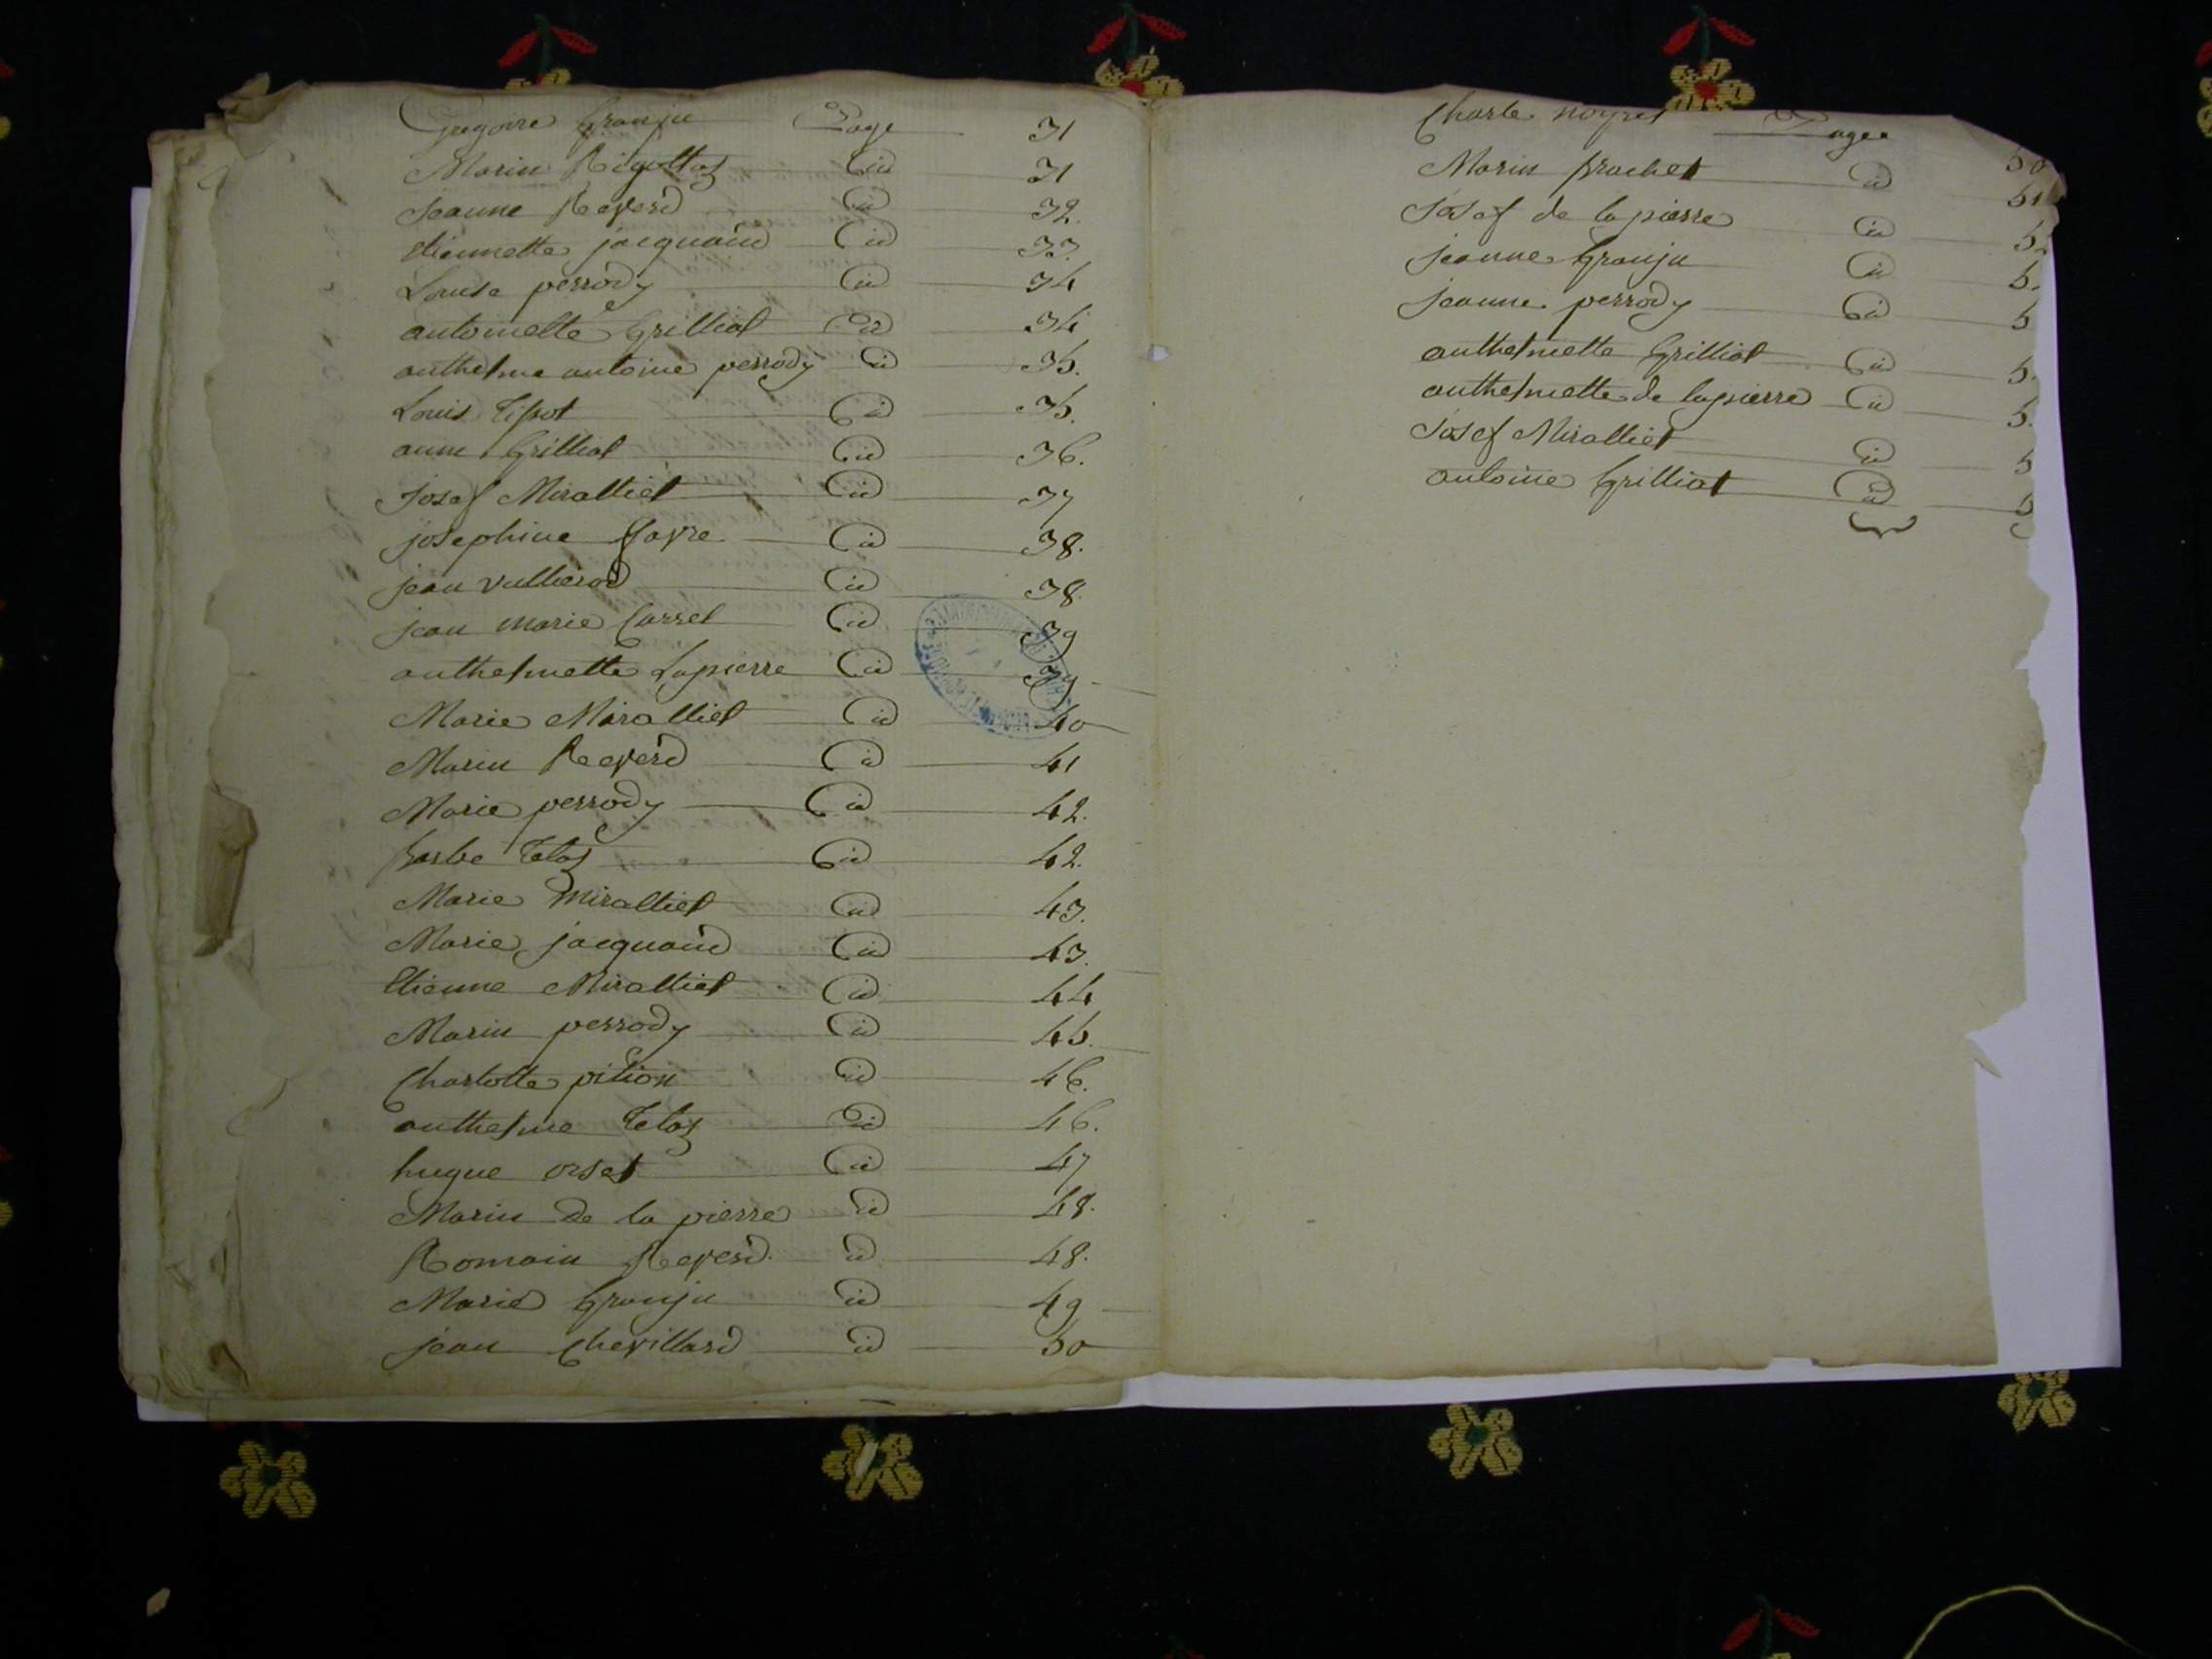 Gregoire Granju Page 31
Marin Rigottaz id 31
jeanne Reverd id 32.
etiennette jacquand id 33.
Louise perrody id 34
antoinette Grilliat id 34
anthelme antoine perrody id 35.
Louis Tissot id 35.
anne Grilliat id 36.
Josef Miralliet id 37
josephine favre id 38.
jean vulliarod id 38.
jean marie Carrel id 39
anthelmette Lapierre id 39
Marie Miralliet id 40
Marin Reverd id 41
Marie perrody id 42.
barbe Telaz id 42.
Marie miralliet id 43.
Marie jacquand id 43.
Etienne Miralliet id 44
Marin perrody id 45.
Charlotte pition id 46.
anthelme Telaz id 46.
hugue orset id 47
Marin de la pierre id 48.
Romain Reverd. id 48.
Marie Granju id 49
jean Chevillard id 50
Charle noyret Page 50
Marin brachet id 51
Josef de la pierre id 5
jeanne Granju id 5
jeanne perrody id 5
anthelmette Grilliat id 5.
anthelmette de lapierre id 5.
Josef Miralliet id 5
antoine Grilliat id 5